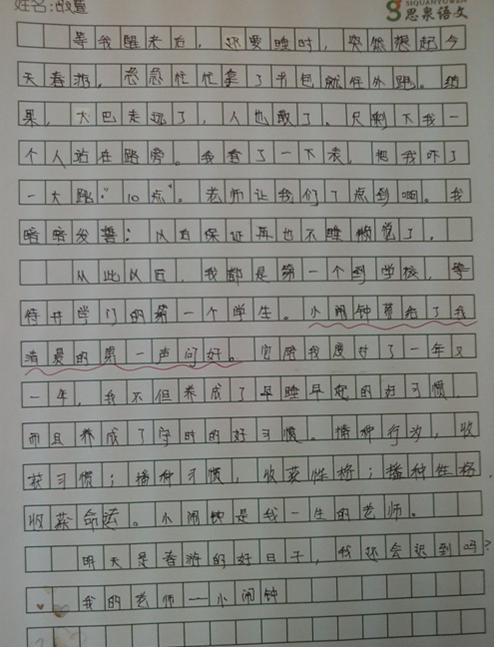 姓名:
SIQUANYUWEN
思泉语文
等我醒来后，还要睡时，突然想起今
天春游，急急忙忙拿了书包就往外跑。结
果，大巴走远了，人也散了。只剩下我一
个人站在路旁。我看了一下表，把我吓了
一大跳："10点"。老师让我们7点到啊。我
暗暗发誓：以后保证再也不睡懒觉了，
从此以后，我都是第一个到学校，等
待开学门的第一个学生。小闹钟算给了我
清晨的第一声问好。它陪我度过了一年又
一年，我不但养成了早睡早起的好习惯，
而且养成了守时的好习惯。播种行为，收
获习惯；播种习惯，收获性格；播种性格，
收获命运。小闹钟是我一生的老师。
明天是春游的好日子，我还会迟到吗？
我的老师——小闹钟